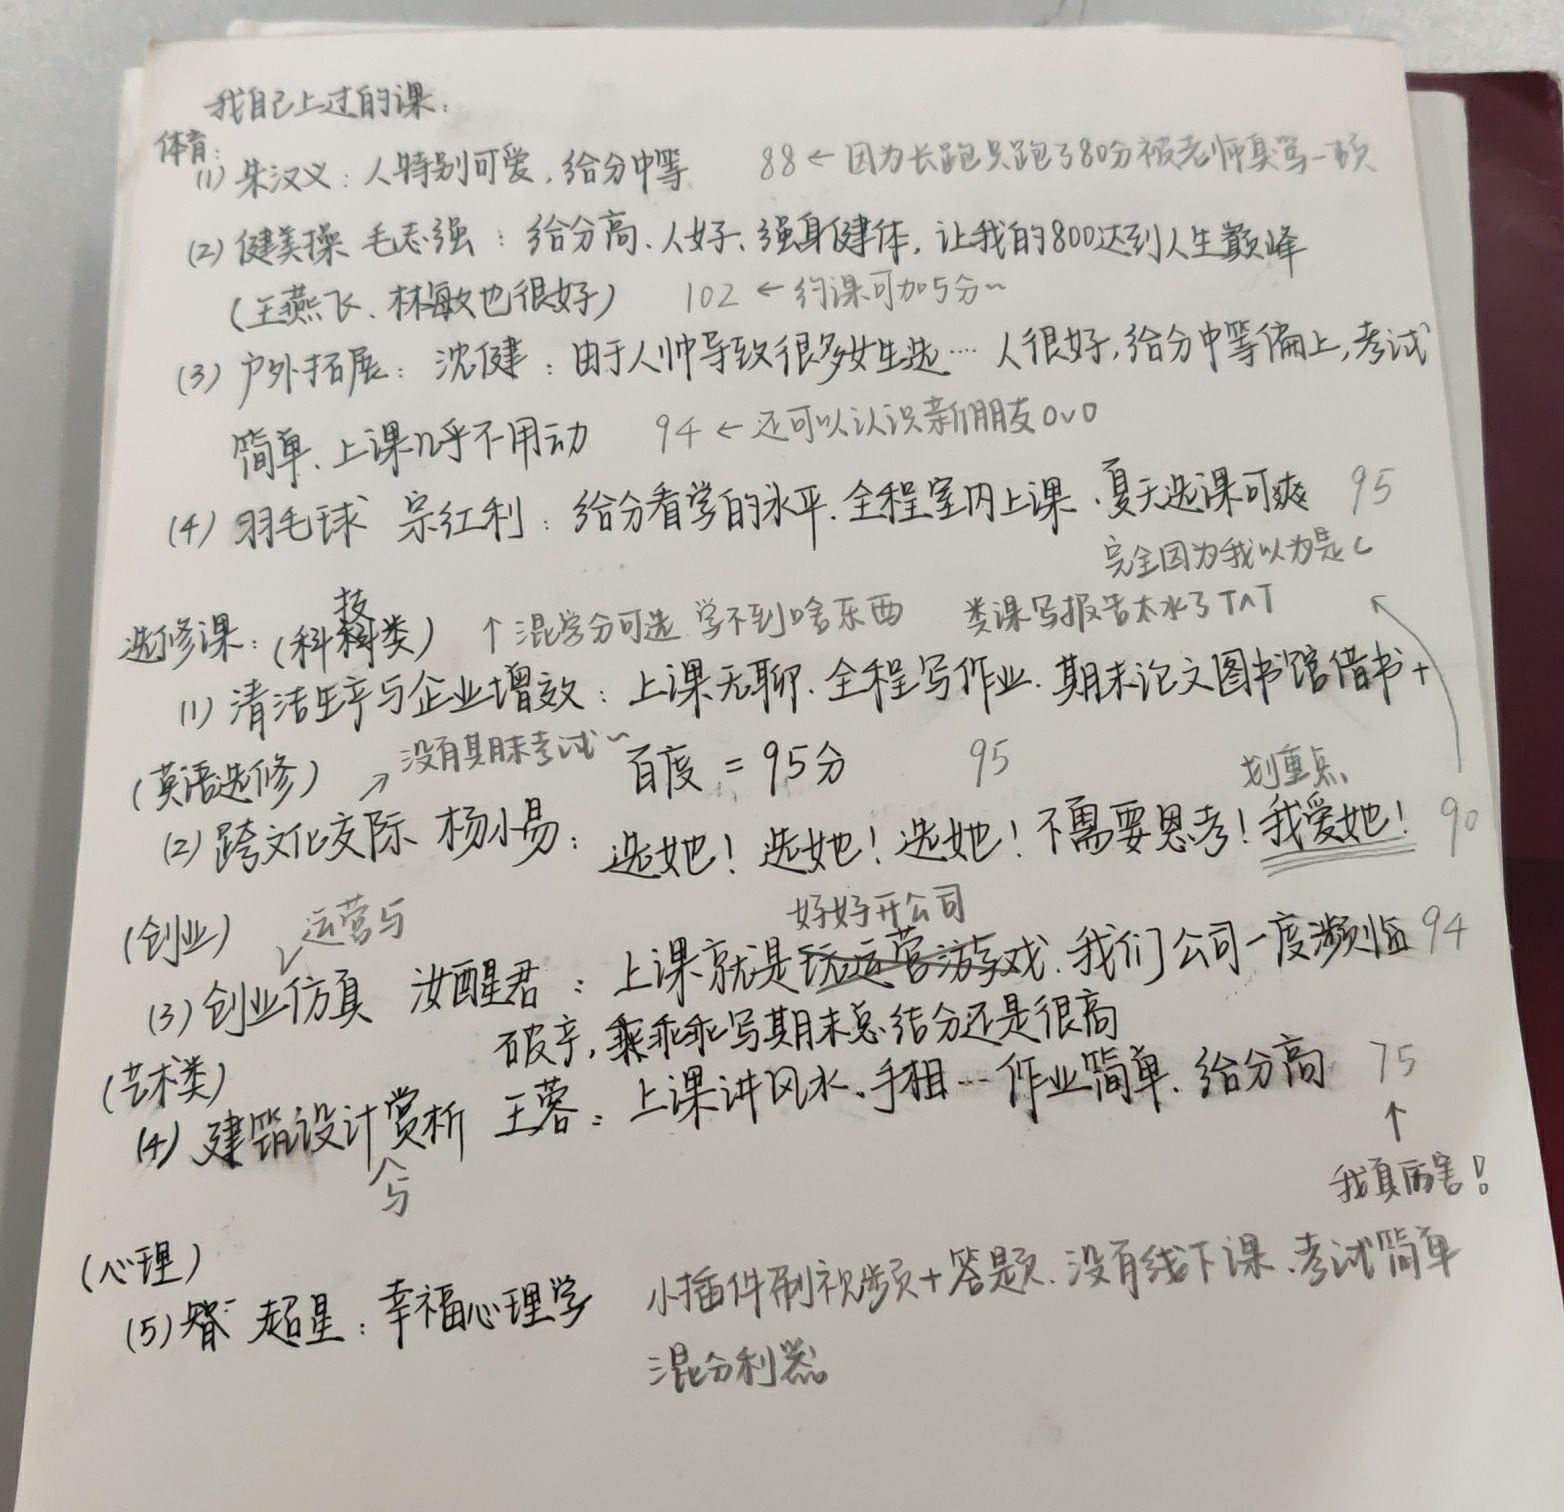 我自己上过的课：
体育：
(1) 朱汉义：人特别可爱，给分中等 88 ← 因为长跑只跑了80分被老师臭骂一顿
(2) 健美操 毛志强：给分高、人好、强身健体，让我的800达到人生巅峰
(王燕飞、林敏也很好) 102 ← 约课可加5分~
(3) 户外拓展：沈健：由于人帅导致很多女生选… 人很好，给分中等偏上，考试
简单、上课几乎不用动 94 ← 还可以认识新朋友OvO
(4) 羽毛球 宗红利：给分看学的水平、全程室内上课、夏天选课可爽 95
完全因为我以为是C
选修课：(科技类) ↑混学分可选 学不到啥东西 类课写报告太水了TAT
(1) 清洁生产与企业增效：上课无聊、全程写作业、期末论文图书馆借书+
(英语选修) ↗没有期末考试~ 百度 = 95分 95 划重点
(2) 跨文化交际 杨小易：选她！选她！选她！不需要思考！我爱她！ 90
(创业) 运营与 好好开公司
(3) 创业仿真 汝醒君：上课就是玩运营游戏、我们公司一度濒临 94
破产，乖乖写期末总结分还是很高
(艺术类)
(4) 建筑设计赏析 王蓉：上课讲风水、手相… 作业简单、给分高 75
与 ↑
我真厉害！
(心理)
(5) 超星：幸福心理学 小插件刷视频+答题、没有线下课、考试简单
混分利器